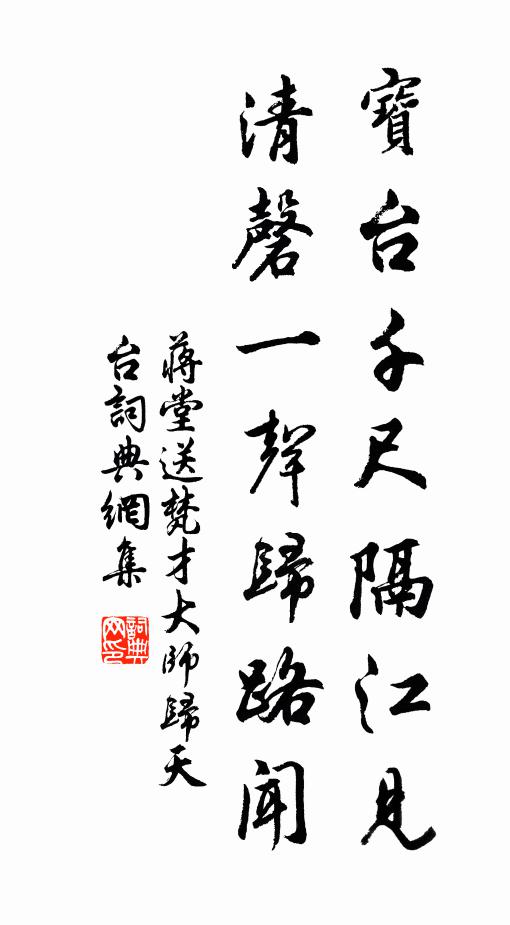 寶台千尺隔江見
清磬一聲歸路聞
蔣堂送梵才大師歸天
台詞典網集
詞典网印